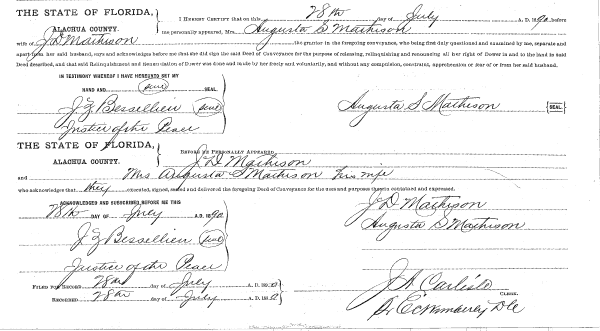 THE STATE OF FLORIDA,
ALACHUA COUNTY.
I HEREBY CERTIFY that on this 28th day of July A. D. 1890, before
me personally appeared, Mrs. Augusta S Mathison
wife of J D Mathison the grantor in the foregoing conveyance, who being thus duly questioned and examined by me, separate and
apart from her said husband, says and acknowledges before me that she did sign the said Deed of Conveyance for the purpose of releasing, relinquishing and renouncing all her right of Dower in and to the land in said
Deed described, and that said Relinquishment and Renunciation of Dower was done and made by her freely and voluntarily, and without any compulsion, constraint, apprehension or fear of or from her said husband.
IN TESTIMONY WHEREOF I HAVE HEREUNTO SET MY
HAND AND (seal) SEAL.
J. Z Bessellieu (seal)
Augusta S Mathison [SEAL]
Justice of the Peace
THE STATE OF FLORIDA,
ALACHUA COUNTY.
BEFORE ME PERSONALLY APPEARED J. D Mathison
and Mrs Augusta S Mathison his wife
who acknowledge that they executed, signed, sealed and delivered the foregoing Deed of Conveyance for the uses and purposes therein contained and expressed.
ACKNOWLEDGED AND SUBSCRIBED BEFORE ME THIS
28th DAY OF July A.D. 1890
J D Mathison
Augusta S Mathison
J. Z Bessellieu (seal)
Justice of the Peace
FILED FOR RECORD 28th day of July A. D. 1890
RECORDED 28th day of July A. D. 1890
J A Carlisle
CLERK.
Pr E C Wimberly D C